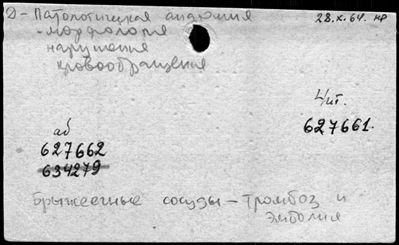 Д - Патологическая анатомия
28.X.64. кр
- морфология
нарушения
кровообращения
Чит.
аб
627661.
627662
634279
Брыжеечные сосуды - Тромбоз и
эмболия